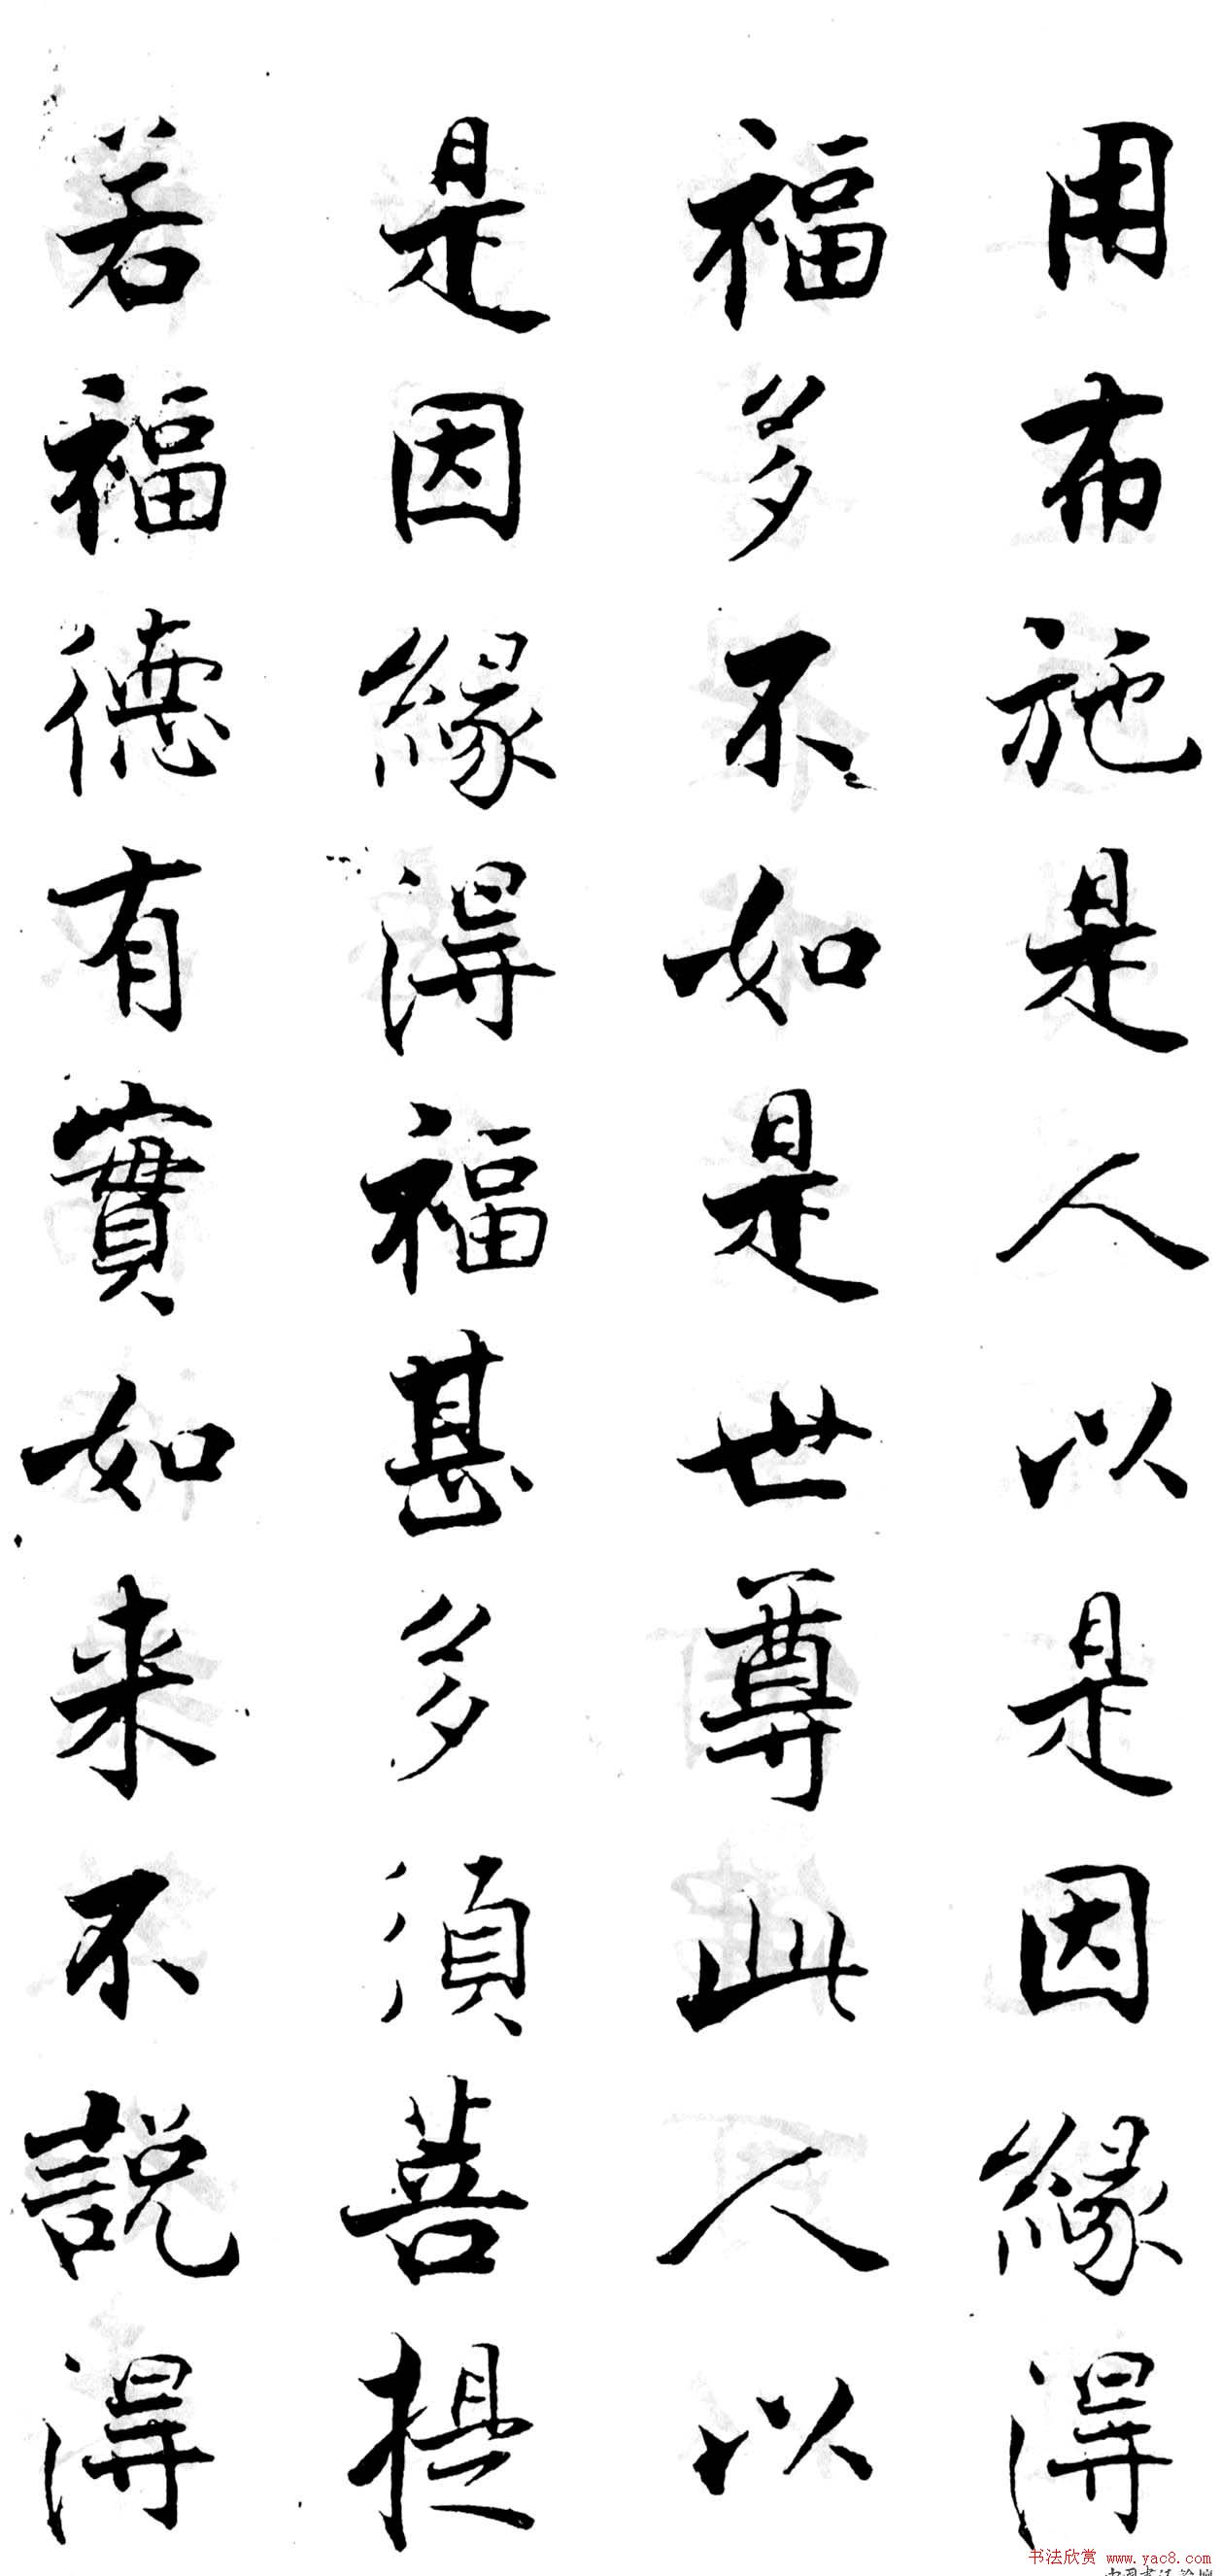 用布施是人以是因緣得
福多不如是世尊此人以
是因緣得福甚多須菩提
若福德有實如来不説得
书法欣赏 www.yac8.com